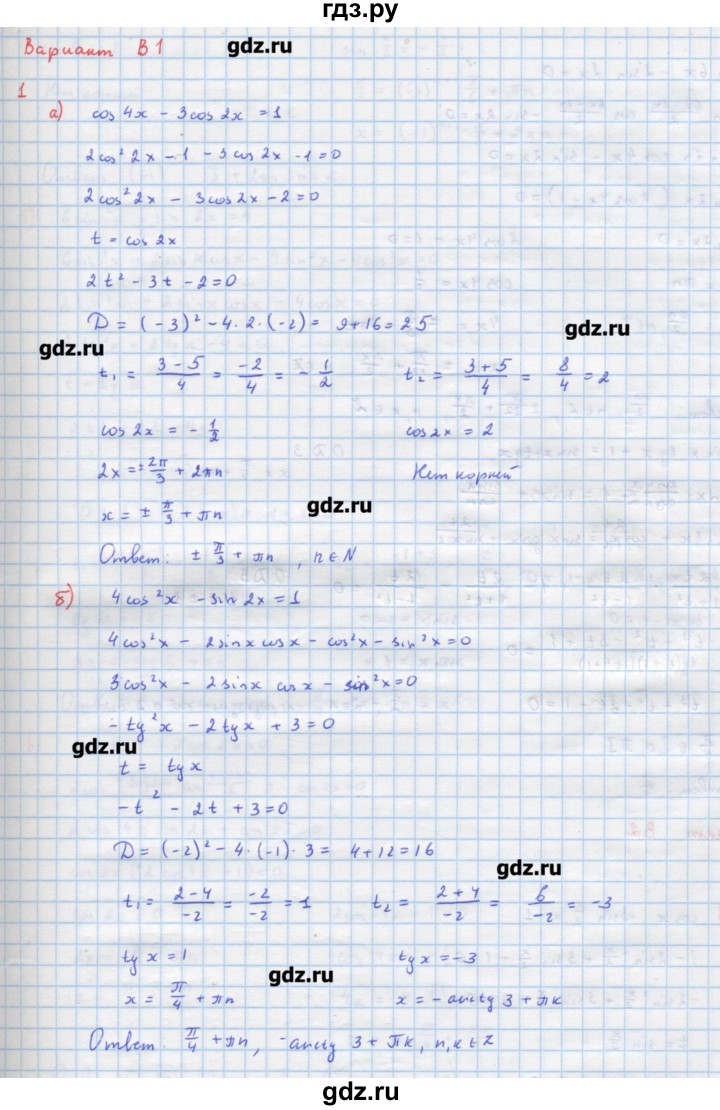 гдз.ру
Вариант В1
gdz.ru
1
а) cos 4x - 3 cos 2x = 1
2cos² 2x - 1 - 3 cos 2x - 1 = 0
2 cos² 2x - 3 cos 2x - 2 = 0
t = cos 2x
2t² - 3t - 2 = 0
D = (-3)² - 4·2·(-2) = 9 + 16 = 25
gdz.ru
gdz.ru
t₁ = (3-5)/4 = -2/4 = -1/2 t₂ = (3+5)/4 = 8/4 = 2
cos 2x = -1/2 cos 2x = 2
2x = ± 2π/3 + 2πn Нет корней
x = ± π/3 + πn
gdz.ru
Ответ: ± π/3 + πn, n ∈ N
б) 4 cos²x - sin 2x = 1
4 cos²x - 2 sin x cos x - cos²x - sin²x = 0
3 cos²x - 2 sin x cos x - sin²x = 0
- tg²x - 2 tg x + 3 = 0
gdz.ru
t = tg x
-t² - 2t + 3 = 0
D = (-2)² - 4·(-1)·3 = 4 + 12 = 16
gdz.ru
t₁ = (2-4)/-2 = -2/-2 = 1 t₂ = (2+4)/-2 = 6/-2 = -3
tg x = 1 tg x = -3
gdz.ru
x = π/4 + πn x = - arctg 3 + πk
Ответ. π/4 + πn, - arctg 3 + πk, n,k ∈ Z
gdz.ru